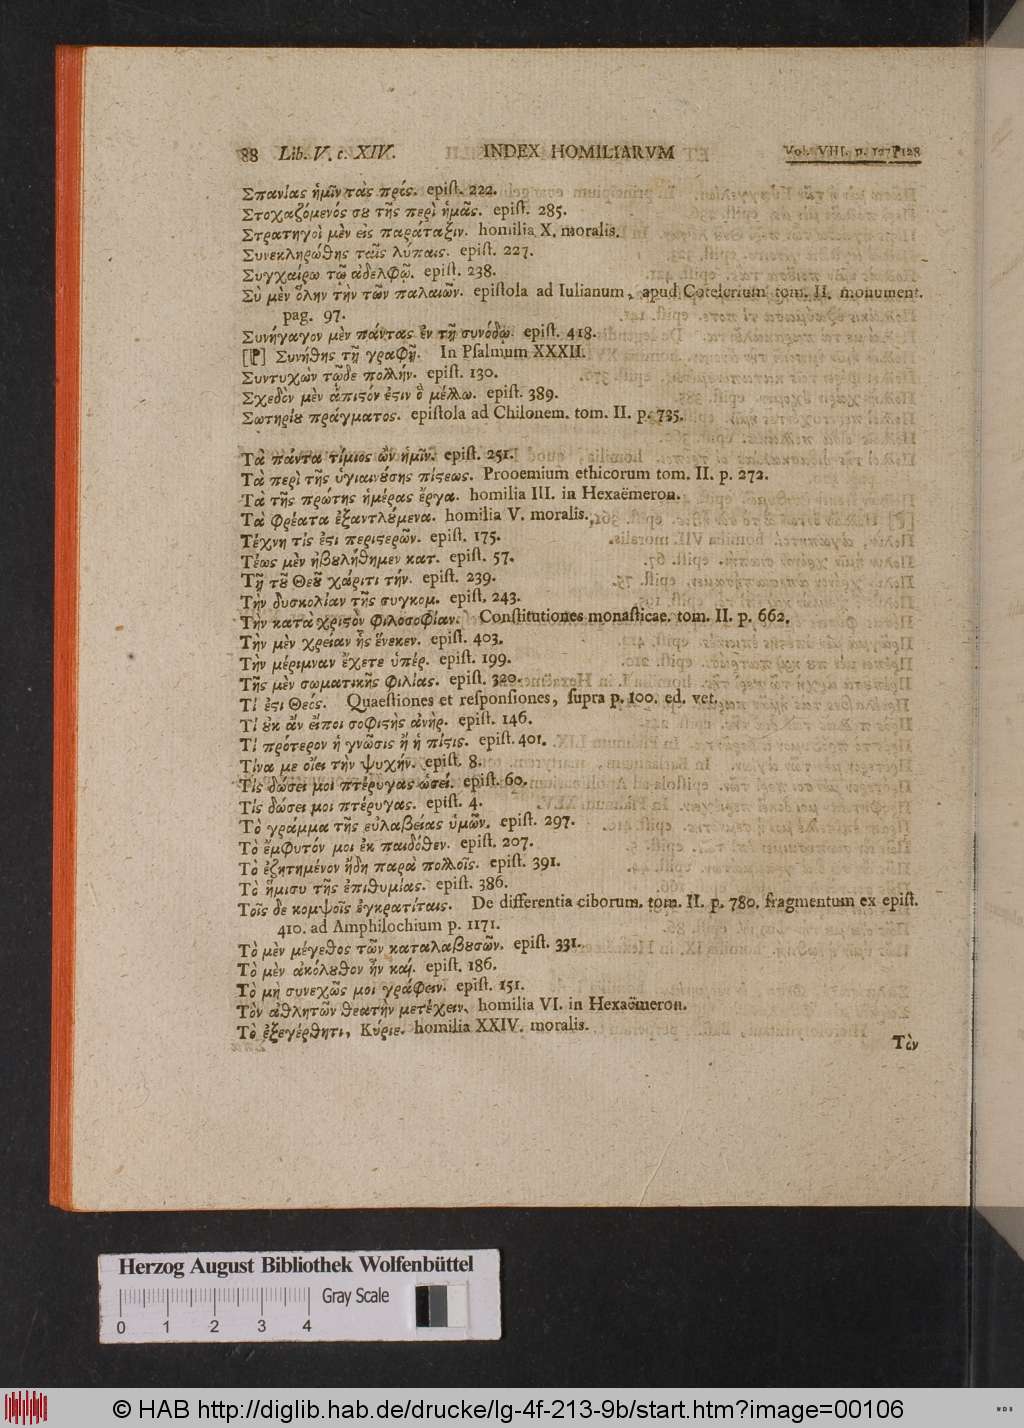 88 Lib. V. c. XIV. INDEX HOMILIARVM Vol. VIII. p. 127⁋128
Σπανίας ἡμῖν τὰς πρός. epiſt. 222.
Στοχαζόμενός σȣ τῆς περὶ ἡμᾶς. epiſt. 285.
Στρατηγοὶ μὲν εἰς παράταξιν. homilia X. moralis.
Συνεκληρώθης ταῖς λύπαις. epiſt. 227.
Συγχαίρω τῷ ἀδελφῷ. epiſt. 238.
Σὺ μὲν ὅλην τὴν τῶν παλαιῶν. epiſtola ad Iulianum, apud Cotelerium tom. II. monument.
pag. 97.
Συνήγαγον μὲν πάντας ἐν τῇ συνόδῳ. epiſt. 418.
[⁋] Συνήθης τῇ γραφῇ. In Pſalmum XXXII.
Συντυχὼν τῷδε πολλήν. epiſt. 130.
Σχεδὸν μὲν ἄπιϛόν ἐϛιν ὃ μέλλω. epiſt. 389.
Σωτηρίȣ πράγματος. epiſtola ad Chilonem. tom. II. p. 735.
Τὰ πάντα τίμιος ὢν ἡμῖν. epiſt. 251.
Τὰ περὶ τῆς ὑγιαινȣ́σης πίϛεως. Prooemium ethicorum tom. II. p. 272.
Τὰ τῆς πρώτης ἡμέρας ἔργα. homilia III. in Hexaëmeron.
Τὰ φρέατα ἐξαντλȣ́μενα. homilia V. moralis.
Τέχνη τίς ἐϛι περιϛερῶν. epiſt. 175.
Τέως μὲν ἠβȣλήθημεν κατ. epiſt. 57.
Τῇ τȣ͂ Θεȣ͂ χάριτι τήν. epiſt. 239.
Τὴν δυσκολίαν τῆς συγκομ. epiſt. 243.
Τὴν κατὰ χριϛὸν φιλοσοφίαν. Conſtitutiones monaſticae. tom. II. p. 662.
Τὴν μὲν χρείαν ἧς ἕνεκεν. epiſt. 403.
Τὴν μέριμναν ἔχετε ὑπέρ. epiſt. 199.
Τῆς μὲν σωματικῆς φιλίας. epiſt. 320.
Τί ἐϛι Θεός. Quaeſtiones et reſponſiones, ſupra p. 100. ed. vet.
Τί ȣκ ἂν εἴποι σοφιϛὴς ἀνὴρ. epiſt. 146.
Τί πρότερον ἡ γνῶσις ἢ ἡ πίϛις. epiſt. 401.
Τίνα με οἴει τὴν ψυχήν. epiſt. 8.
Τίς δώσει μοι πτέρυγας ὡσεί. epiſt. 60.
Τίς δώσει μοι πτέρυγας. epiſt. 4.
Τὸ γράμμα τῆς εὐλαβείας ὑμῶν. epiſt. 297.
Τὸ ἔμφυτόν μοι ἐκ παιδόθεν. epiſt. 207.
Τὸ ἐζητημένον ἤδη παρὰ πολλοῖς. epiſt. 391.
Τὸ ἥμισυ τῆς ἐπιθυμίας. epiſt. 386.
Τοῖς δε κομψοῖς ἐγκρατίταις. De differentia ciborum. tom. II. p. 780. fragmentum ex epiſt.
410. ad Amphilochium p. 1171.
Τὸ μὲν μέγεθος τῶν καταλαβȣσῶν. epiſt. 331.
Τὸ μὲν ἀκόλȣθον ἦν καί. epiſt. 186.
Τὸ μὴ συνεχῶς μοι γράφειν. epiſt. 151.
Τὸν ἀθλητῶν θεατὴν μετέχειν. homilia VI. in Hexaëmeron.
Τὸ ἐξεγέρθητι, Κύριε. homilia XXIV. moralis.
Τὸν
Herzog August Bibliothek Wolfenbüttel
Gray Scale
0 1 2 3 4
© HAB http://diglib.hab.de/drucke/lg-4f-213-9b/start.htm?image=00106